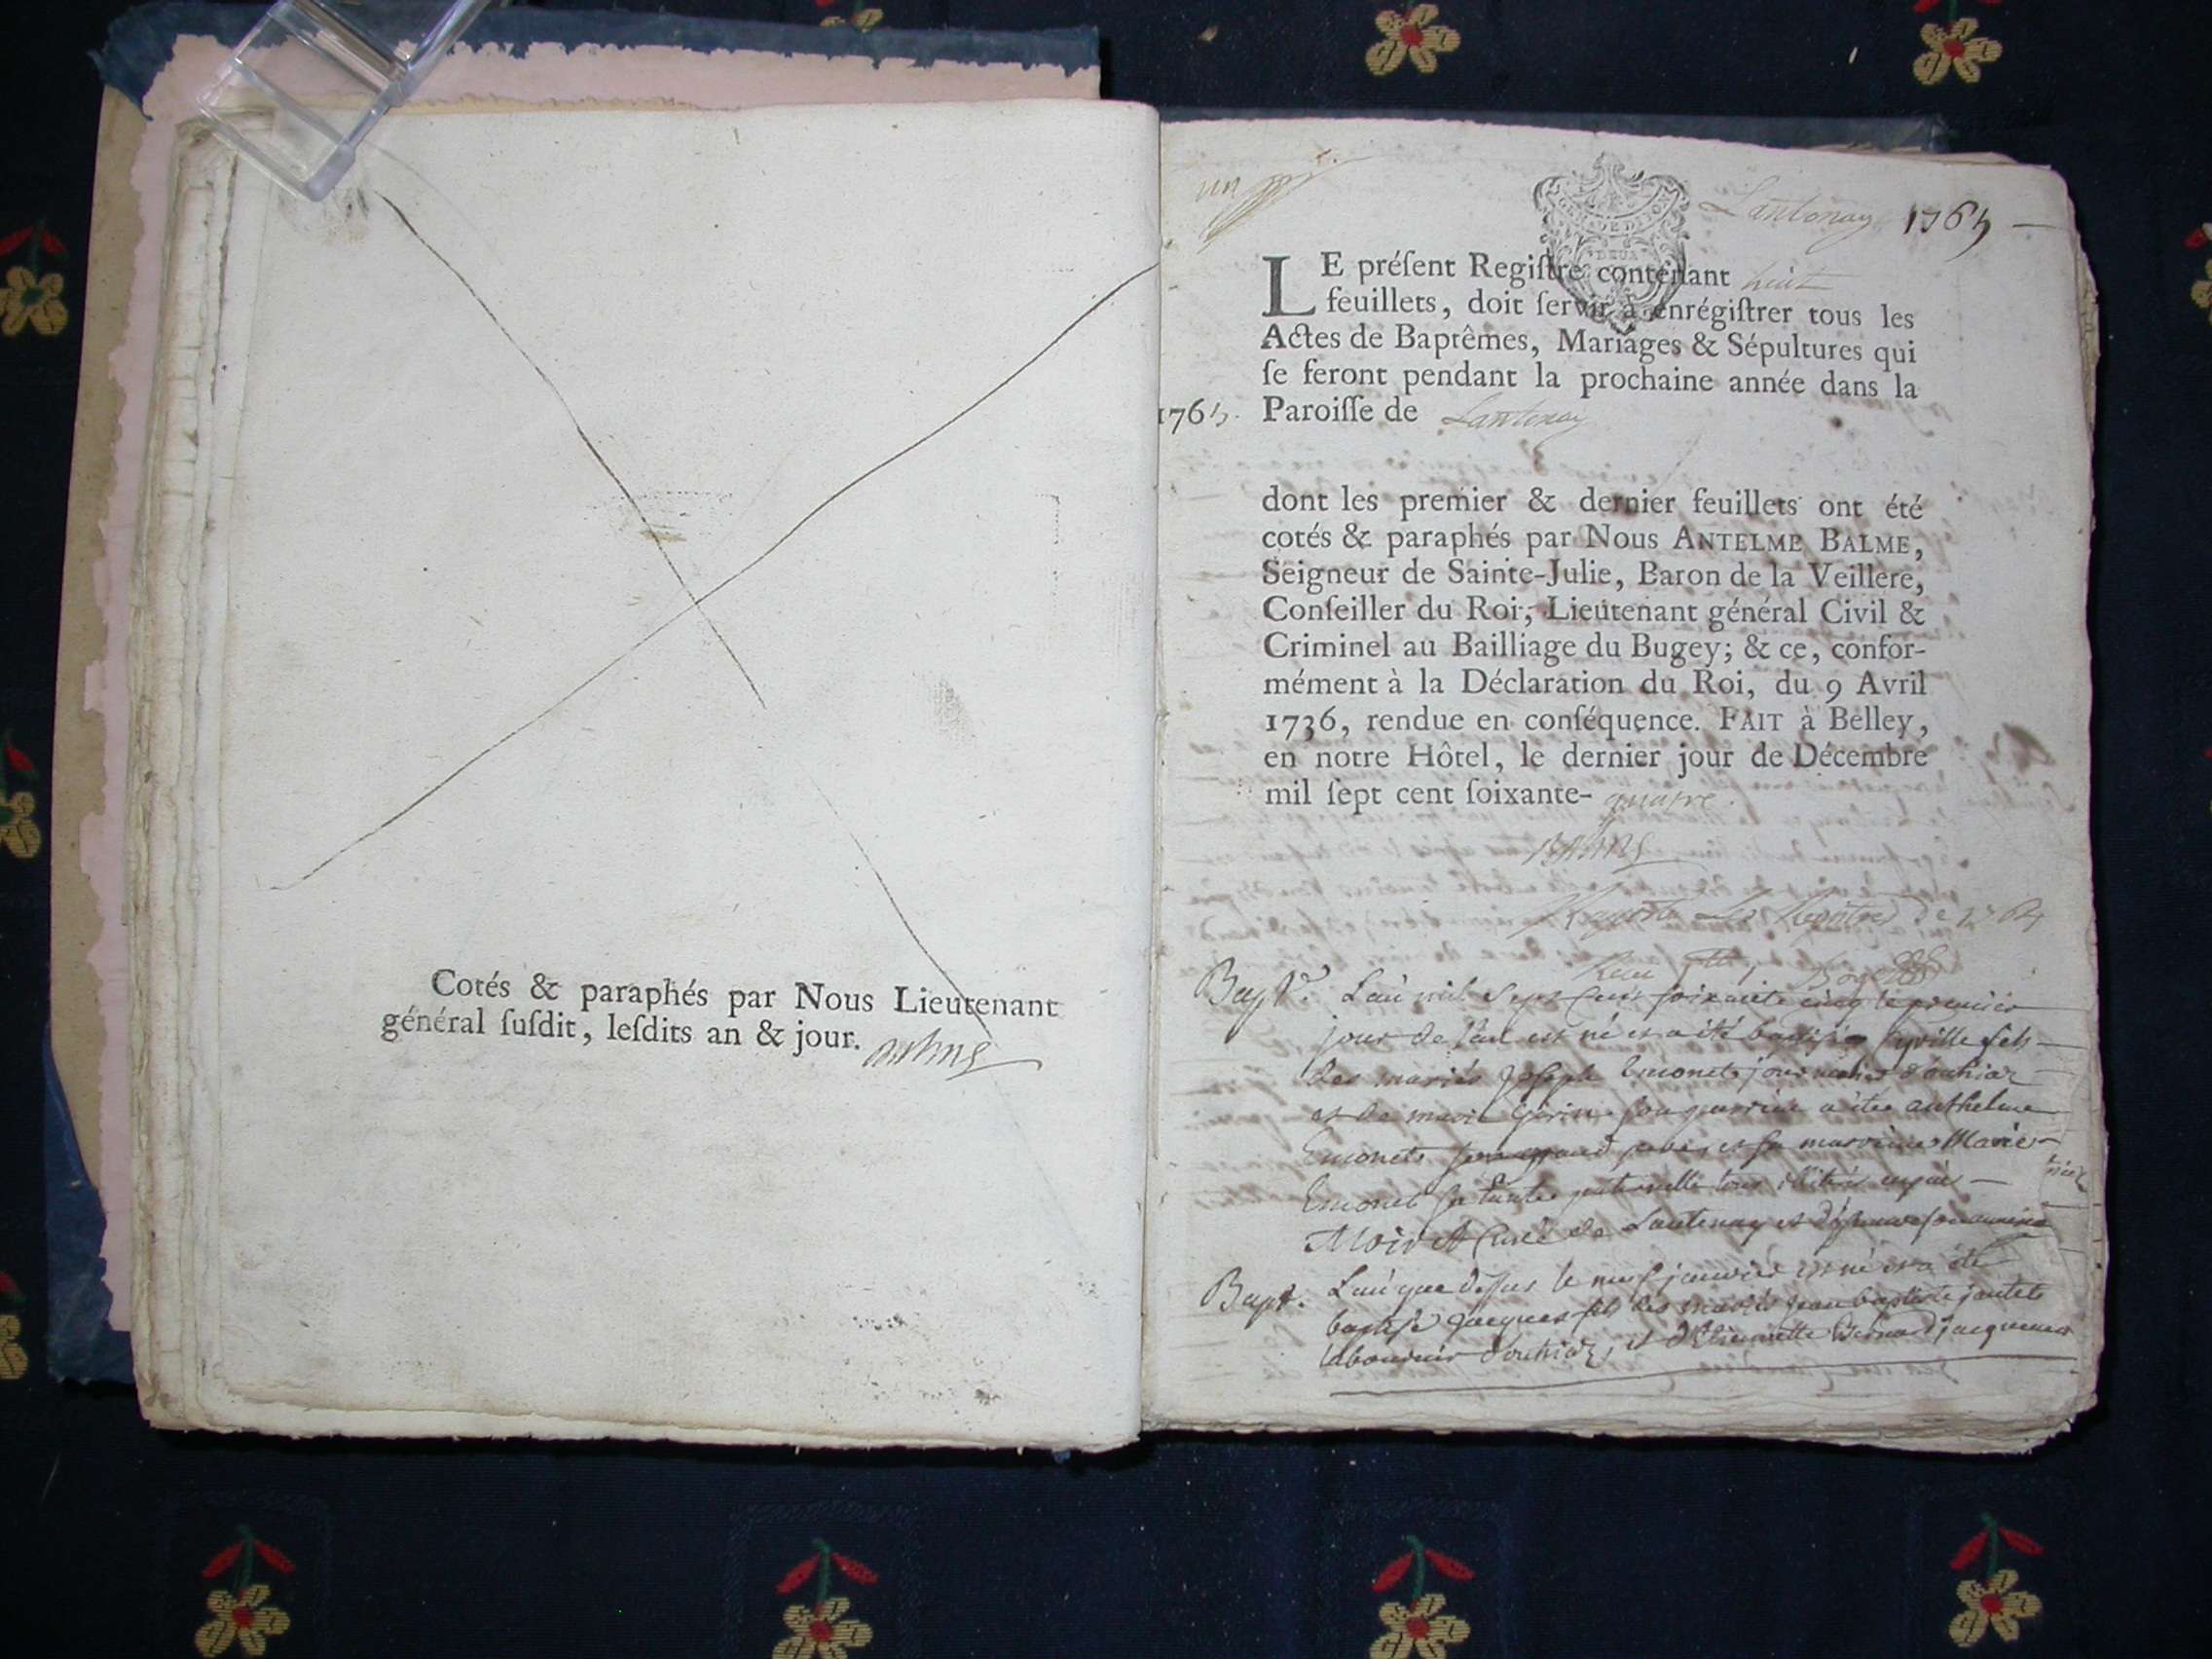 Cotés & paraphés par Nous Lieutenant
général ſuſdit, leſdits an & jour.
Balme
un
Lantenay 1765
LE préſent Regiſtre contenant huit
feuillets, doit ſervir à enrégiſtrer tous les
Actes de Baptêmes, Mariages & Sépultures qui
ſe feront pendant la prochaine année dans la
1765. Paroiſſe de Lantenay
dont les premier & dernier feuillets ont été
cotés & paraphés par Nous ANTELME BALME,
Seigneur de Sainte-Julie, Baron de la Veillere,
Conſeiller du Roi, Lieutenant général Civil &
Criminel au Bailliage du Bugey; & ce, confor-
mément à la Déclaration du Roi, du 9 Avril
1736, rendue en conſéquence. FAIT à Belley,
en notre Hôtel, le dernier jour de Décembre
mil ſept cent ſoixante- quatre.
Balme
Bapt. L'an mil sept cent soixante cinq le premier
jour de l'an est né et a été baptisé fils
des mariés Joseph Emonet journalier d'outriaz
et de marie son parrain a été anthelme
Emonet son grand pere, et sa marraine Marie
Emonet sa tante paternelle tous illitérés
Curé de Lantenay et
Bapt. L'an que dessus le neuf janvier est né et a été
baptisé Jacques fils des mariés Jean baptiste
laboureur d'outriaz, et d'Etiennette Bernard